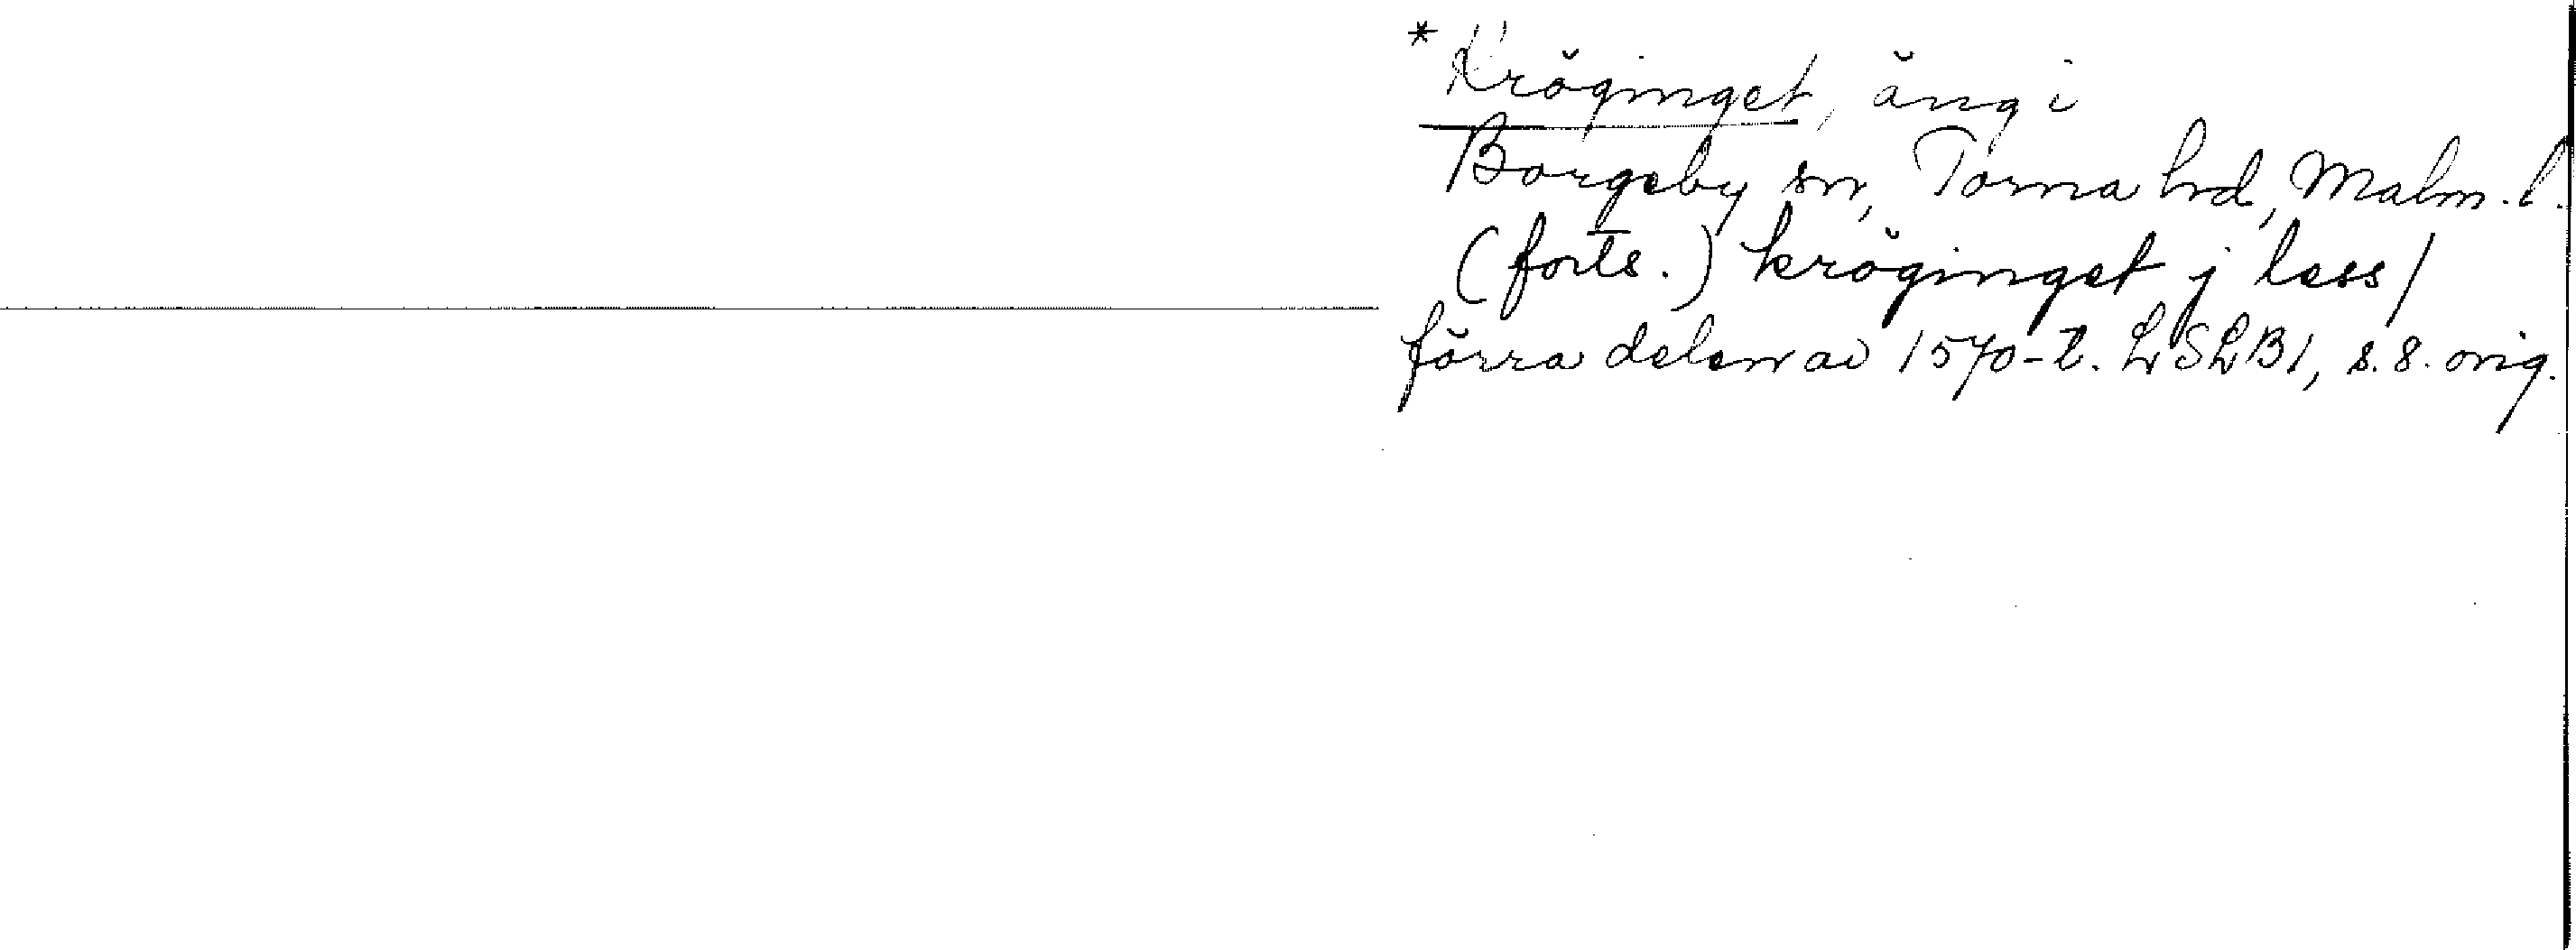 *Kröginget, äng i
Borgeby sn, Torna hrd, Malm. l.
(forts.) kröginget j less/
förra delen av 1570-t. LSLB1, s. 8. orig.